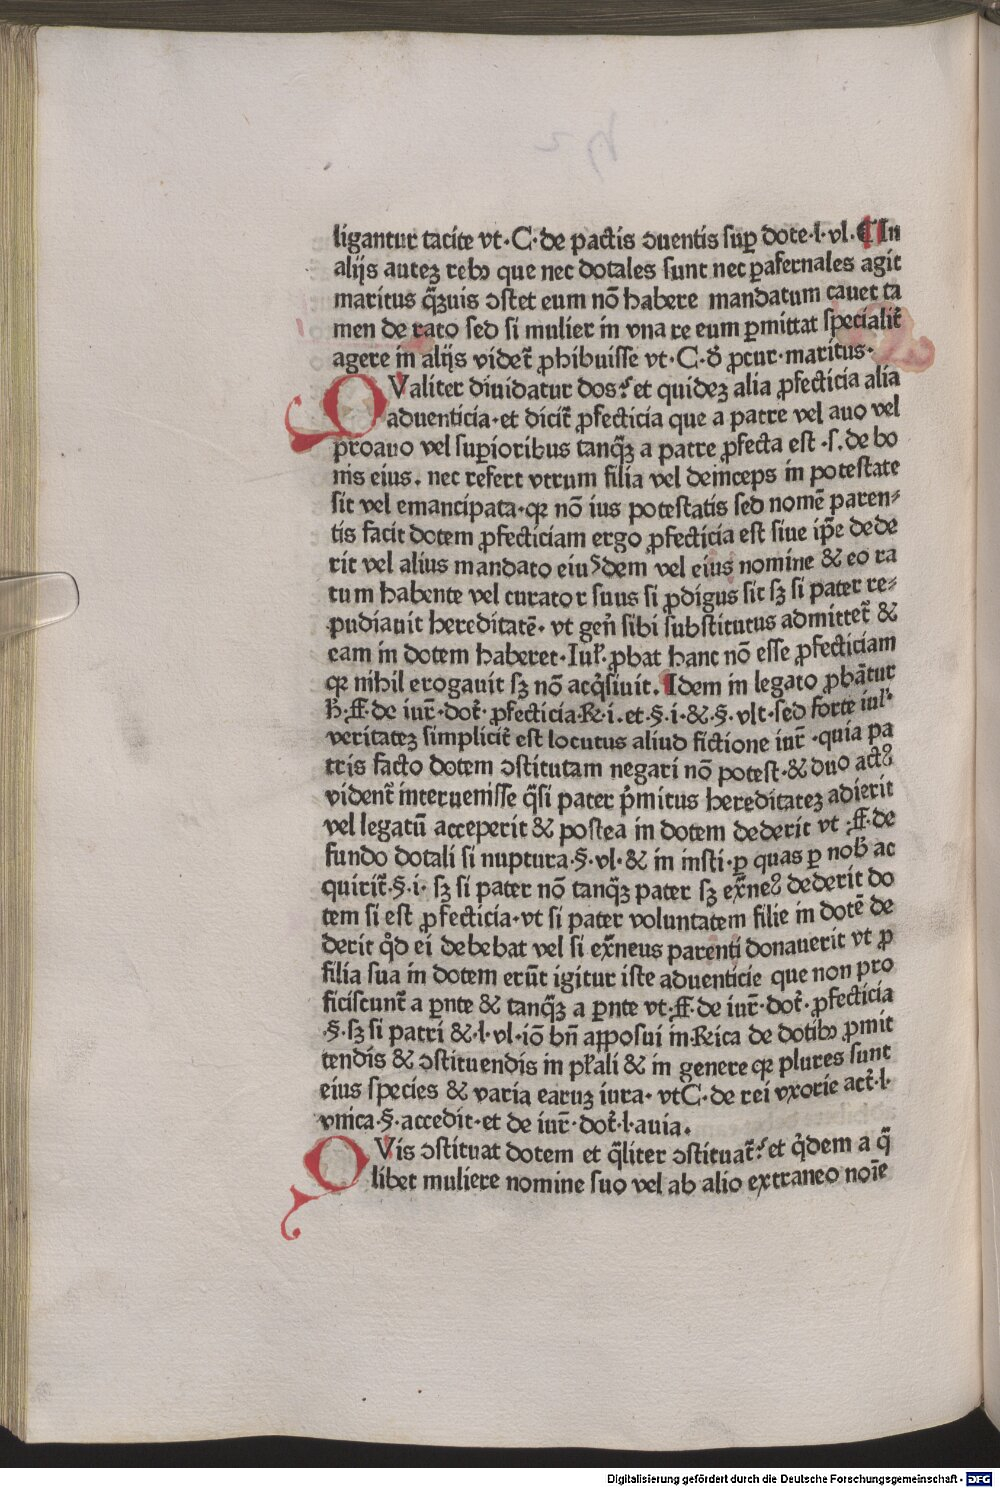 ligantur tacite vt·C·de pactis ↄuentis suꝑ dote·l·vl.¶In
alijs autez rebꝫ que nec dotales sunt nec ꝑafernales agit
maritus q̃zuis ↄstet eum nō habere mandatum cauet ta
men de rato sed si mulier in vna re eum ꝑmittat specialit̃
agere in alijs videt̃ ꝓhibuisse vt·C·ꝺ̉ ꝓcur·maritus·
QValiter diuidatur dos? et quidez alia ꝓfecticia alia
aduenticia·et dicit̃ ꝓfecticia que a patre vel auo vel
proauo vel suꝑioribus tanq̃z a patre ꝓfecta est ·s. de bo
nis eius. nec refert vtrum filia vel deinceps in potestate
sit vel emancipata·qꝛ nō ius potestatis sed nomē paren⸗
tis facit dotem ꝓfecticiam ergo ꝓfecticia est siue ip̄e dede
rit vel alius mandato eiusdem vel eius nomine & eo ra
tum habente vel curator suus si ꝓdigus sit sꝫ si pater re⸗
pudiauit hereditatē· vt gen̄ sibi substitutus admittet̃ &
eam in dotem haberet·Iul̉. ꝓbat hanc nō esse ꝓfecticiam
qꝛ nihil erogauit sꝫ nō acq̉siuit. Idem in legato ꝓbātur
h̉·ff·de iur̃·dot̉· ꝓfecticia·R·i·et·§·i·&·§·vlt·sed forte iul̉·
veritatez simplicit̃ est locutus aliud fictione iur̃ ·quia pa
tris facto dotem ↄstitutam negari nō potest·& duo actꝰ
vident̃ interuenisse q̃si pater p̉mitus hereditatez adierit
vel legatū acceperit & postea in dotem dederit vt ·ff·de
fundo dotali si nuptura·§·vl·& in insti·ꝑ quas ꝑ nob̉ ac
quirit̃·§·i· sꝫ si pater nō tanq̃z pater sꝫ ex̃neꝰ dederit do
tem si est ꝓfecticia·vt si pater voluntatem filie in dotē de
derit q̉d ei debebat vel si ex̃neus parenti donauerit vt ꝓ
filia sua in dotem erūt igitur iste aduenticie que non pro
ficiscunt̃ a ꝑnte & tanq̃z a ꝑnte vt·ff·de iur̃·dot̉· ꝓfecticia
·§·sꝫ si patri &·l·vl·iō bn̄ apposui in·Rica de dotibꝫ ꝓmit
tendis & ↄstituendis in pl̉ali & in genere qꝛ plures sunt
eius species & varia earuz iura· vtC·de rei vxorie act̉·l·
vnica·§·accedit·et de iur̃·dot̉·l·auia.
QVis ↄstituat dotem et q̃liter ↄstituat̃? et q̉dem a q̃
libet muliere nomine suo vel ab alio extraneo noīe
Digitalisierung gefördert durch die Deutsche Forschungsgemeinschaft - DFG